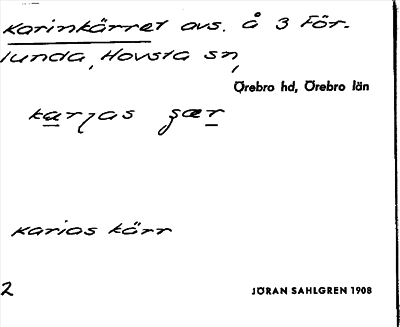 Karinkärret avs. å 3 För-
lunda, Hovsta sn,
Örebro hd, Örebro län
karjas ʒær
karias kärr
2 JÖRAN SAHLGREN 1908